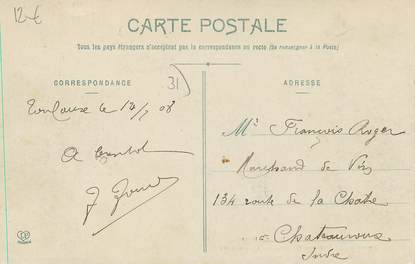 12€
CARTE POSTALE
Tous les pays étrangers n'acceptent pas la correspondance au recto (Se renseigner à la Poste)
CORRESPONDANCE
31
Toulouse le 12/7 08
A Bientot
ADRESSE
Mr François Roger
Marchand de Vin
134 route de la Chatre
Chateauroux
Indre